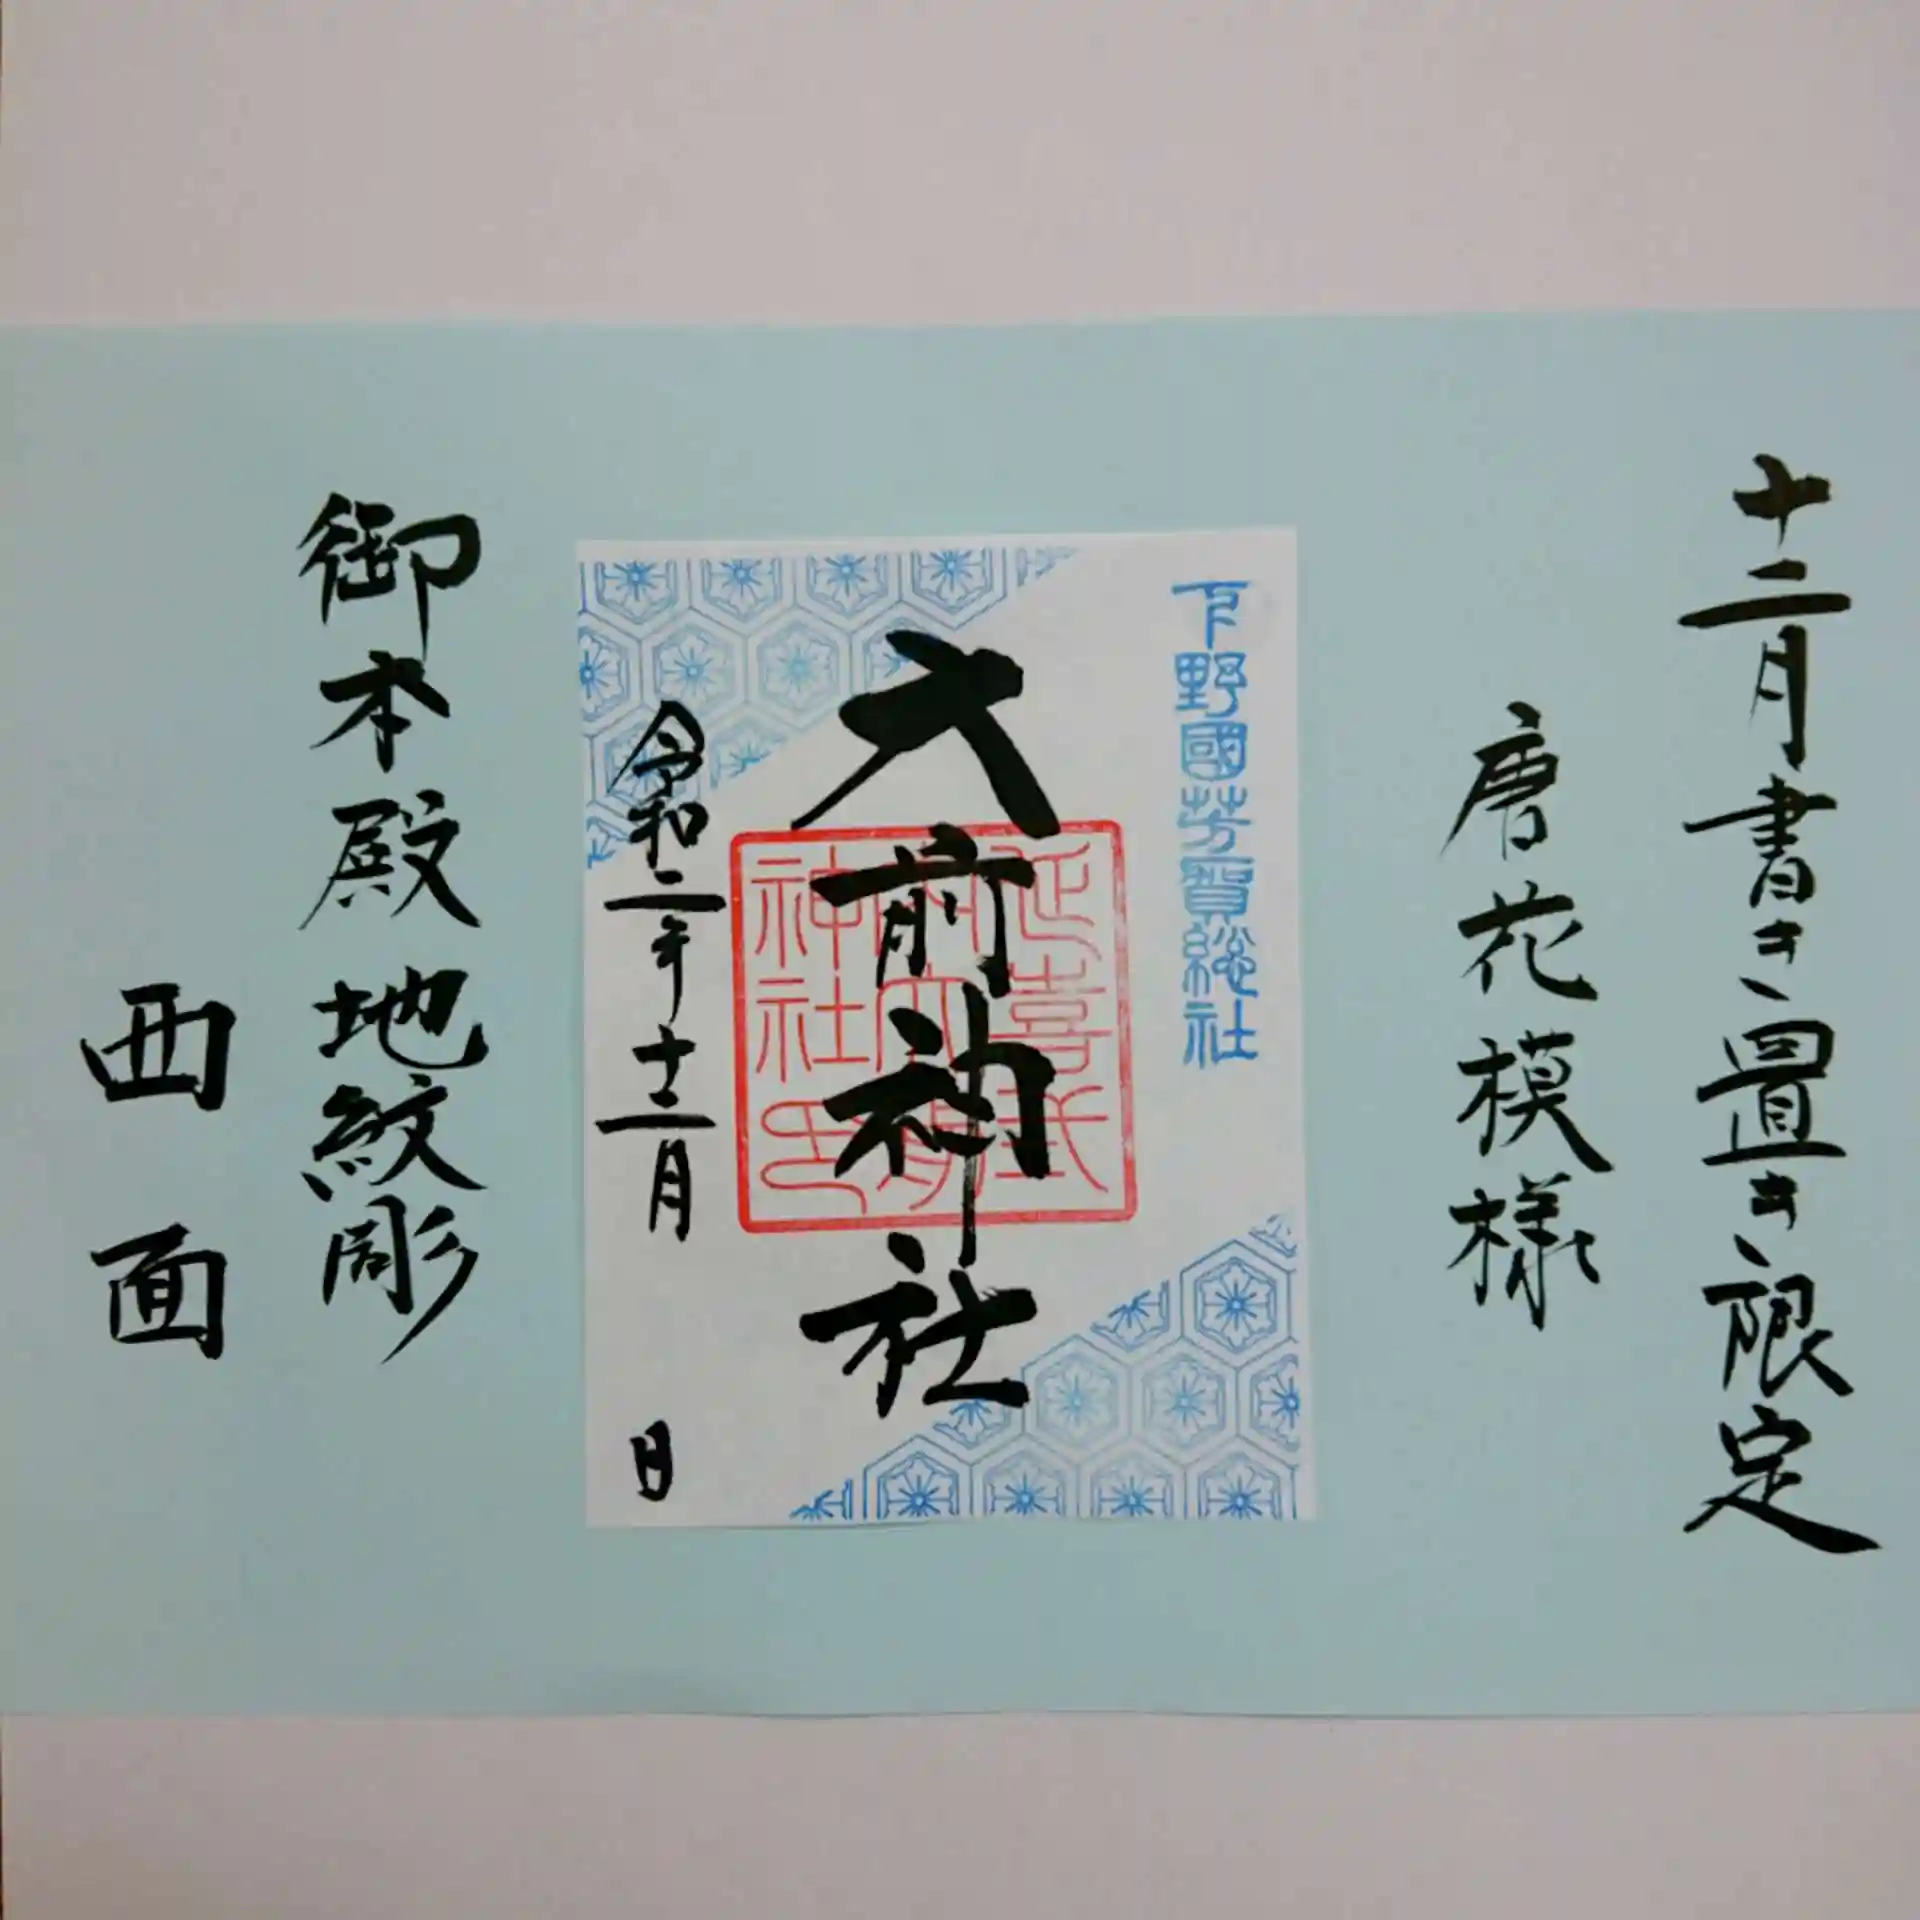 十二月書き置き限定
唐花模様
下野國芳賀総社
大前神社
延喜式
内大前
神社印
令和二年十二月 日
御本殿地紋彫
西面